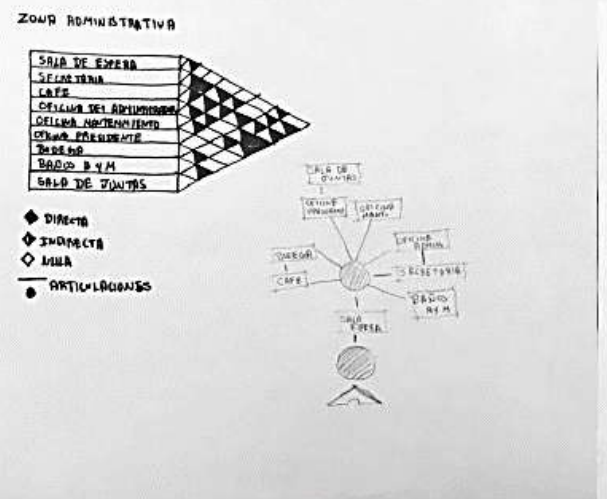 ZONA ADMINISTRATIVA
SALA DE ESPERA
SECRETARIA
CAFE
OFICINA DEL ADMINISTRADOR
OFICINA MANTENIMIENTO
OFICINA PRESIDENTE
BODEGA
BAÑO H Y M
SALA DE JUNTAS
DIRECTA
INDIRECTA
NULA
ARTICULACIONES
SALA DE
JUNTAS
OFICINA
OFICINA
MANT.
OFICINA
ADMIN.
BODEGA
SECRETARIA
CAFE
BAÑO
H Y M
SALA
ESPERA